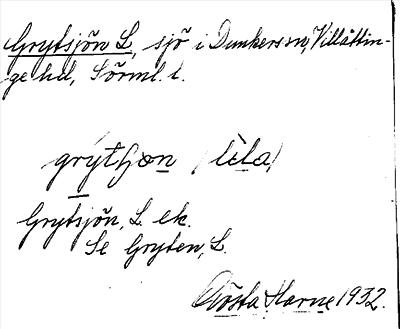 Grytsjön L, sjö i Dunkers sn, Villåttin-
ge hd, Sörml. l.
grytʃön (lila)
Grytsjön, L. ek.
Se Gryten, L.
Gösta Harne 1932.